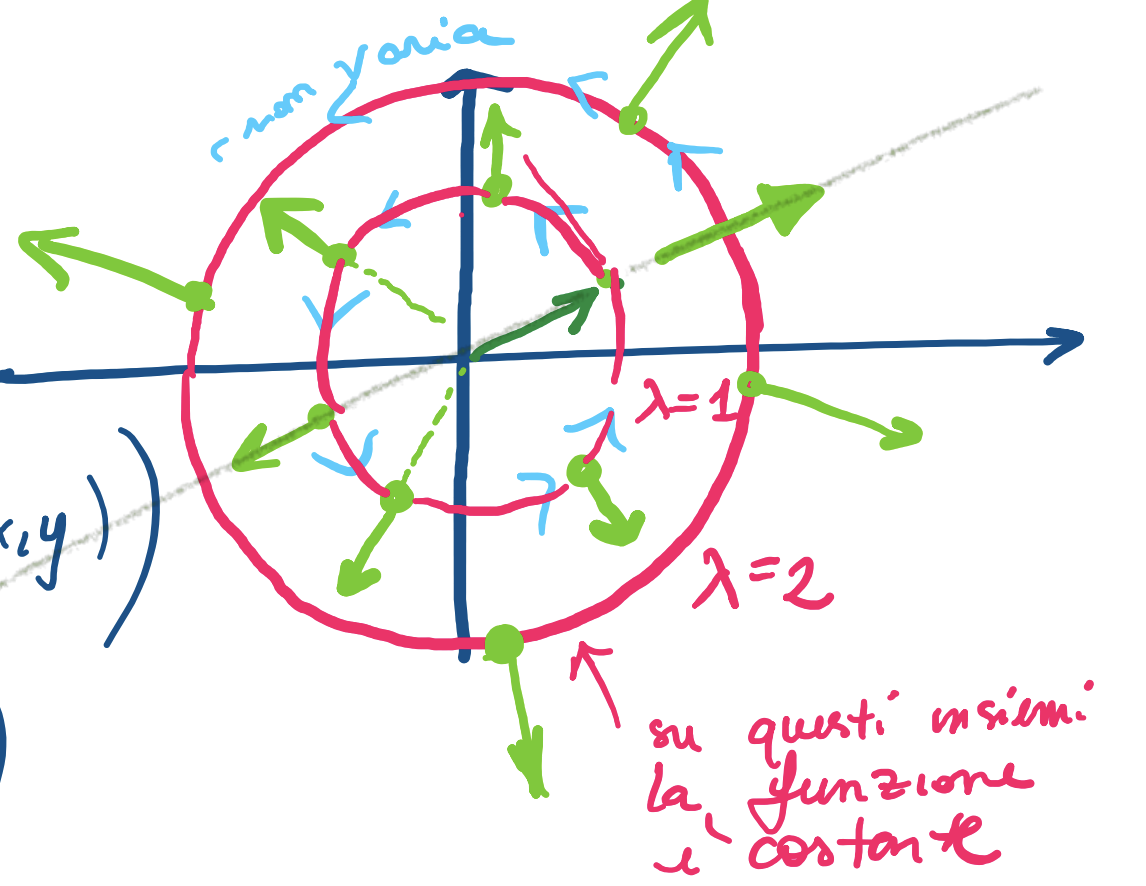 non varia
λ=1
x,y))
λ=2
su questi insiemi
la funzione
è costante